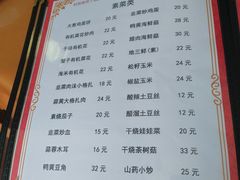 素菜类
大葱鸡蛋饼 20元
有机菜花炒肉 22元
干煸有机花 20元
茄子有机菜花 20元
海米有机花 22元
韭菜肉沫小格扎 18元
蒜黄大格扎肉 24元
素烧茄子 20元
韭菜炒血 15元
蒜蓉木耳 16元
鸭黄豆角 32元
韭菜炒鸡蛋 20元
鸭黄海鲜菇 28元
腊肉海鲜菇 30元
地三鲜(素) 22元
松籽玉米 24元
椒盐玉米 24元
酸辣土豆丝 12元
醋溜土豆丝 12元
干烧娃娃菜 20元
干烧茶树菇 33元
山药小炒 25元